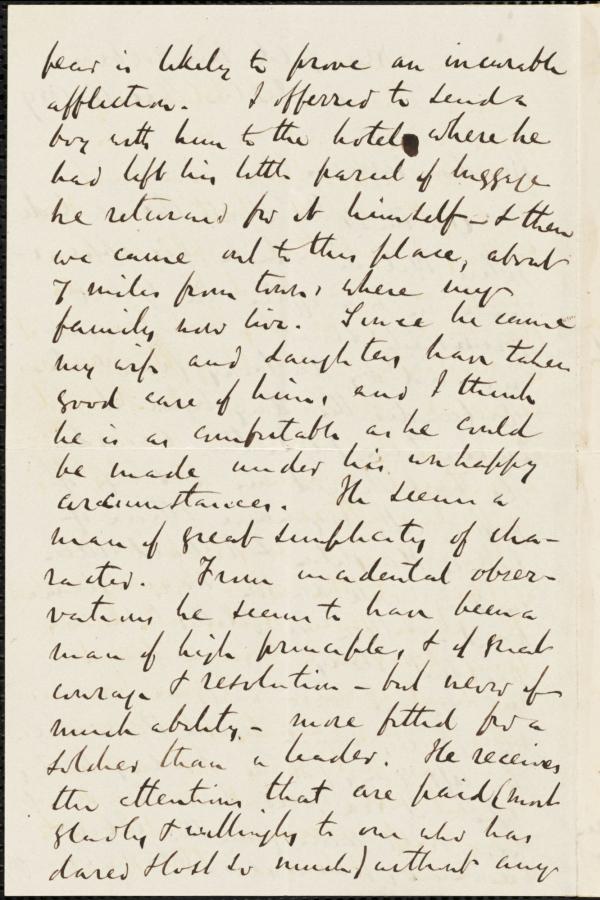 fear is likely to prove an incurable
affliction. I offerred to send a
boy with him to the hotel where he
had left his little parcel of luggage
he returned for it himself - & then
we came out to this place, about
7 miles from town, where my
family now live. Since he came
my wife and daughters have taken
good care of him, and I think
he is as comfortable as he could
be made under his unhappy
circumstances. He seems a
man of great simplicity of cha-
racter. From incidental obser-
vations he seems to have been a
man of high principle, & of great
courage & resolution - but never of
much ability, - more fitted for a
soldier than a leader. He receives
the attentions that are paid (most
gladly & willingly to one who has
dared & lost so much) without any